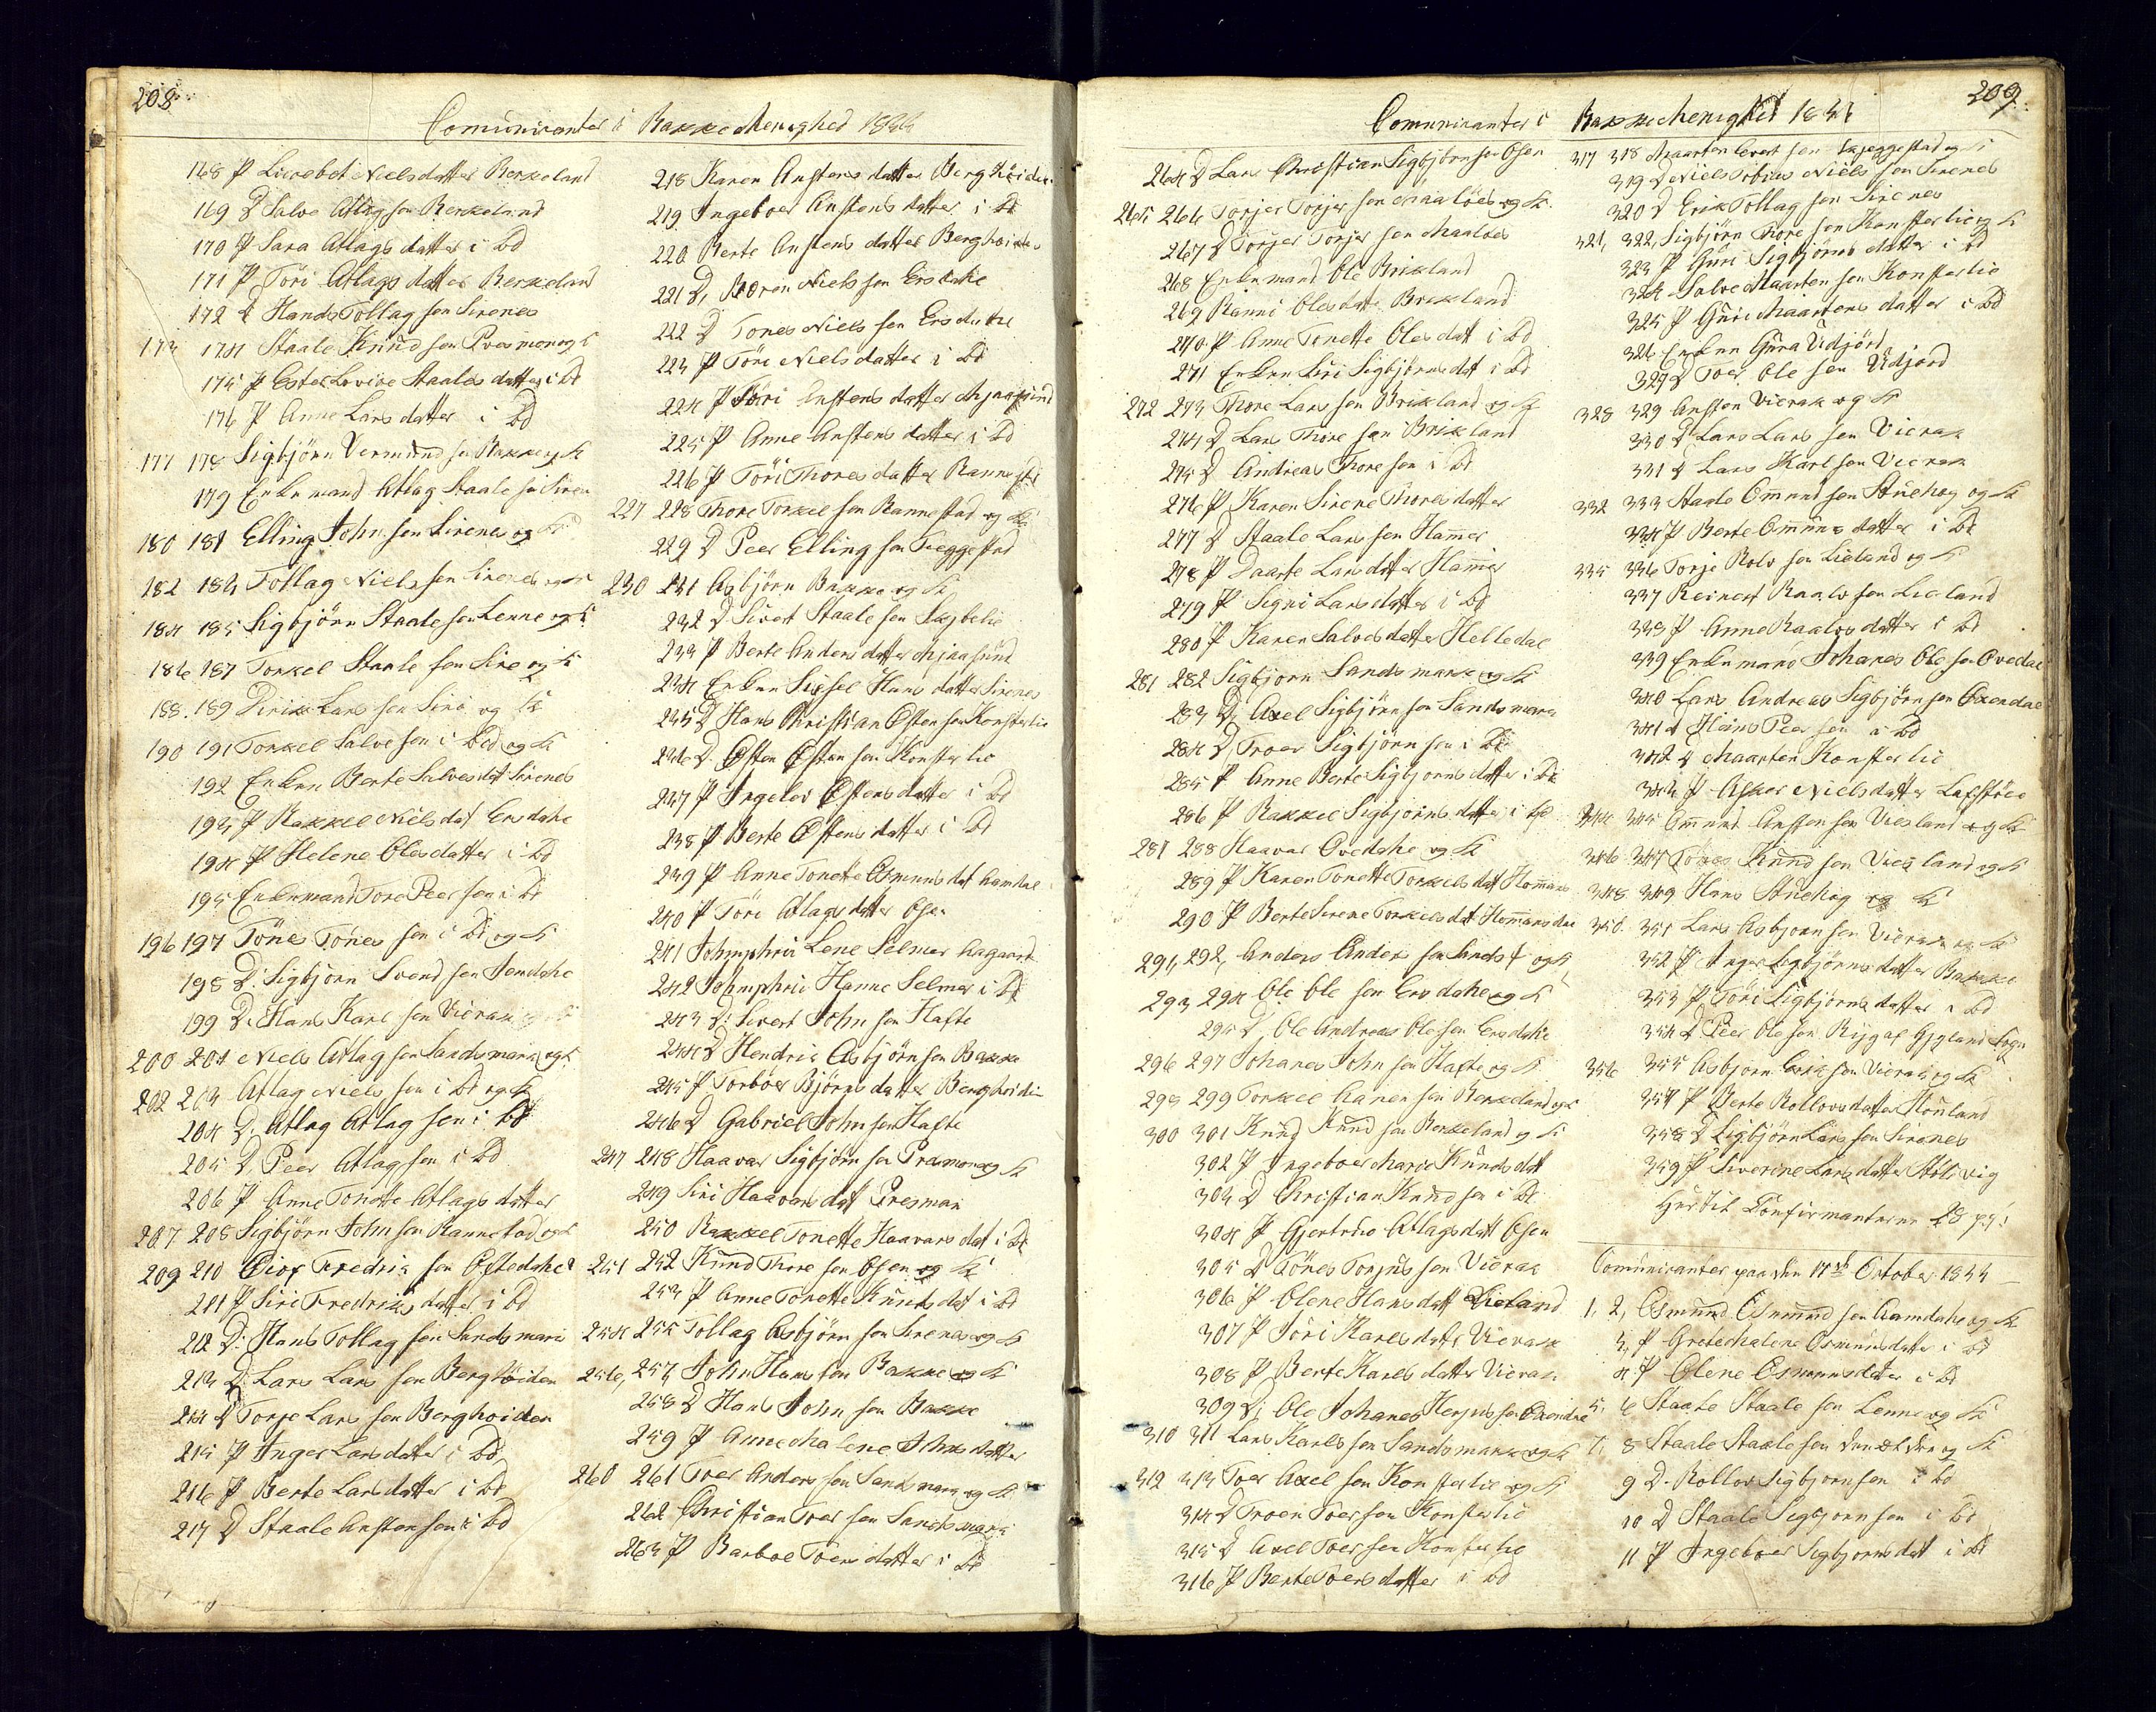 208
Comunicanter i Bakke Menighed 1844
168 P Liverbet Nielsdatter Berkeland
169 D Salve Atlagsen Berkeland
170 P Sara Atlags datter i bd
171 P Töri Atlags datter Berkeland
172 D Hands Tollag sen Sirenes
173 174 Staale Knud sen Presmon og K
175 P Ester Lovise Staales datter i bd
176 P Anne Lars datter i bd
177 178 Sigbjörn Vermund sen Bakke og K
179 Enkemand Atlag Staale sen Siren
180 181 Elling John sen Sirenes og K
182 183 Tollag Niels sen Sirenes og K
184 185 Sigbjörn Staale sen Lenne og K
186 187 Torkel Staale sen Sire og K
188. 189 Dirik Lars sen Sire og K
190 191 Torkel Salve sen i bed og K
192 Enken Berte Salves dat Sirenes
193 P Rakkel Niels dat Ersdahe
194 P Helene Olesdatter i bd
195 Enkemand Tore Peer sen i bd
196 197 Tönes Tönes sen i bd og K
198 D: Sigbjörn Svend sen Jendahe
199 D. Hans Karl sen Vierak
200 201 Niels Atlag sen Sandsmark og K
202 203 Atlag Niels sen i bd og K
204 D. Atlag Atlag sen i bd
205 D. Peer Atlag sen i bd
206 P Anne Tonette Atlags datter
207 208 Sigbjörn John sen Rannestad og K
209 210 Fredrik sen Oftedahe
211 P Siri Fredriks datter i bd
212 D: Hans Tollag sen Sandsmark
213 D: Lars Lars sen Berghöiden
214 D Torje Lars sen Berghoiden
215 P Inger Lars datter i bd
216 P Berte Lars datter i bd
217 D Staale Ansten sen i bd
218 Karen Anstens datter Berghöiden
219 Ingeboer Anstens datter i bd
220 Berte Anstens datter Berghoiden
221 D, Sören Niels sen Ersdahe
222 D Tones Niels sen Ersdahe
223 P Töre Niels datter i bd
224 P Siri Anstens datter Mjaasund
225 P Anne Anstens datter i bd
226 P Töri Thores datter Rannestad
227 228 Thore Torkel sen Rannestad og K
229 D Peer Elling sen Treggestad
230 231 Asbjörn Bakke og K
232 D Sivert Staale sen
233 P Berte Anders datter Mjaasund
234 Enken Sissel Hans datter Sirenes
235 D Hans Christian Østen sen Konsterlie
236 D. Østen Østen sen Konsterlie
237 P Ingebor Østens datter i bd
238 P Berte Østens datter i bd
239 P Anne Tonette Osmuns dat Aamdal
240 P Töre Atlags datter Osen
241 Johmphrü Lene Selmer Aagaard
242 Johmphrü Hanne Selmer i bd
243 D: Sivert John sen Hafte
244 D Hendrik Asbjörn sen Bakke
245 P Torboer Björns datter Berghöiden
246 D Gabriel John sen Hafte
247 248 Haavar Sigbjörn sen Presmon og K
249 Siri Haavars dat Presman
250 Rakkel Tonette Haavars dat i bd
251 252 Knud Thore sen Osen og K
253 P Anne Tonette Knuds dat i bd
254 255 Tollag Asbjörn sen Sirenes og K
256, 257 John Hans sen Bakke og K
258 D Hans John sen Bakke
259 P Anne Malene Johns datter
260 261 Toer Anders sen Sandsmark og K
262 Christian Toer sen Sandsmark
263 P Barboe Toers datter i bd
209
Comunicanter i Bakke Menighed 1844
264 D Lars Christian Sigbjörn sen Osen
265 266 Torjer Torjer sen Maalöes og K
267 D Torjer Torjer sen Maaloes
268 Enkemand Ole Birkland
269 Ranni Olesdatt Birkland
270 P Anne Tonette Oles dat i bd
271 Enken Siri Sigbjörns dat i bd
272 273 Thore Lars sen Birkland og K
274 D Lars Thore sen Birkland
275 D Andreas Thore sen i bd
276 P Karen Sirene Thores datter
277 D Staale Lars sen Hamer
278 P Daarte Lars datter Hamer
279 P Signi Lars datter i bd
280 P Karen Salves datter Helledal
281 282 Sigbjorn Sandsmark og K
283 D, Axel Sigbjörn sen Sandsmark
284 D Troer Sigbjörn sen i bd
285 P Anne Berte Sigbjorns datter i bd
286 P Rakkel Sigbjörns datter i bd
287 288 Haavar Ovedahe og K
289 P Karen Tonette Torkels dat Homans
290 P Berte Sirene Torkels dat Homansdae
291, 292, Anders Anders sen og K
293 294 Ole Ole sen Ersdahe og K
295 D, Ole Andreas Olesen Ersdahe
296 297 Johanes John sen Hafte og K
298 299 Torkel Aanen sen Berkeland og K
300 301 Knud Knud sen Berkeland og K
302 P Ingeboer Marie Knuds dat
303 D Christian Knud sen i bd
304 P Gjertrud Atlags datt Osen
305 D Tönes Tonjus sen Vierak
306 P Olene Hans datt Vieland
307 P Töri Karls datt Vierak
308 P Berte Karls datter Vierak
309 D; Ole Johanes Herjus sen Oxendal
310 311 Lars Karls sen Sandsmark og K
312 313 Toer Axel sen Konsterlie og K
314 D Troen Toer sen Konsterlie
315 D Axel Toer sen Konsterlie
316 P Berte Toers datter i bd
317 318 Maarten Evert sen Skjeggestad og K
319 D Niels Tobias Niels sen Sirenes
320 D Erik Tollag sen Sirenes
321, 322, Sigbjörn Thore sen Konsterlie og K
323 P Guri Sigbjörns datter i bd
324 Salve Maarten sen Konsterlie
325 P Guri Maartens datter i bd
326 Enken Gura Udjörd
329 D Toer Ole sen Udjord
328 329 Ansten Vierak og K
330 D Lars Lars sen Vierak
331 D Lars Karl sen Vierak
332 333 Staale Omund sen Stuehag og K
334 P Berte Omuns datter i bd
335 336 Torje Rolv sen Lieland og K
337 Reinert Raalv sen Lieland
338 P Anne Raalvs datter i bd
339 Enkemand Johanes Ole sen Ovedal
340 Lars Andreas Sigbjörn sen Oxendal
341 D Hans Peer sen i bd
342 D Maarten Konsterlie
343 P Asker Niels datter
344 345 Omund Ansten sen Viesland og K
346 347 Tönes Knud sen Viesland og K
348 349 Hans Stuehag og K
350. 351 Lars Asbjorn sen Vierak og K
352 P Inger Sigbjörns datter Bakke
353 P Töri Sigbjörns datter i bd
354 D Peer Ole sen Gyland Sogn
356 355 Asbjorn Erik sen Vierak og K
357 P Berte Rollovs datter Houland
358 D Sigbjörn Lars sen Sirenes
359 P Siverine Lars datter Stölsvig
Hertil Confirmanterne 28
Comunicanter paa den 17de October 1844
1. 2, Osmund Osmund sen Aamdahe og K
3, P Grete Malene Osmuns datter i bd
4 P Olene Osmuns dater i bd
5. 6 Staale Staale sen Lenne og K
7. 8 Staale Staale sen og K
9 D. Rollov Sigbjorn sen i bd
10 D Staale Sigbjorn sen i bd
11 P Ingeboer Sigbjorns dat i bd